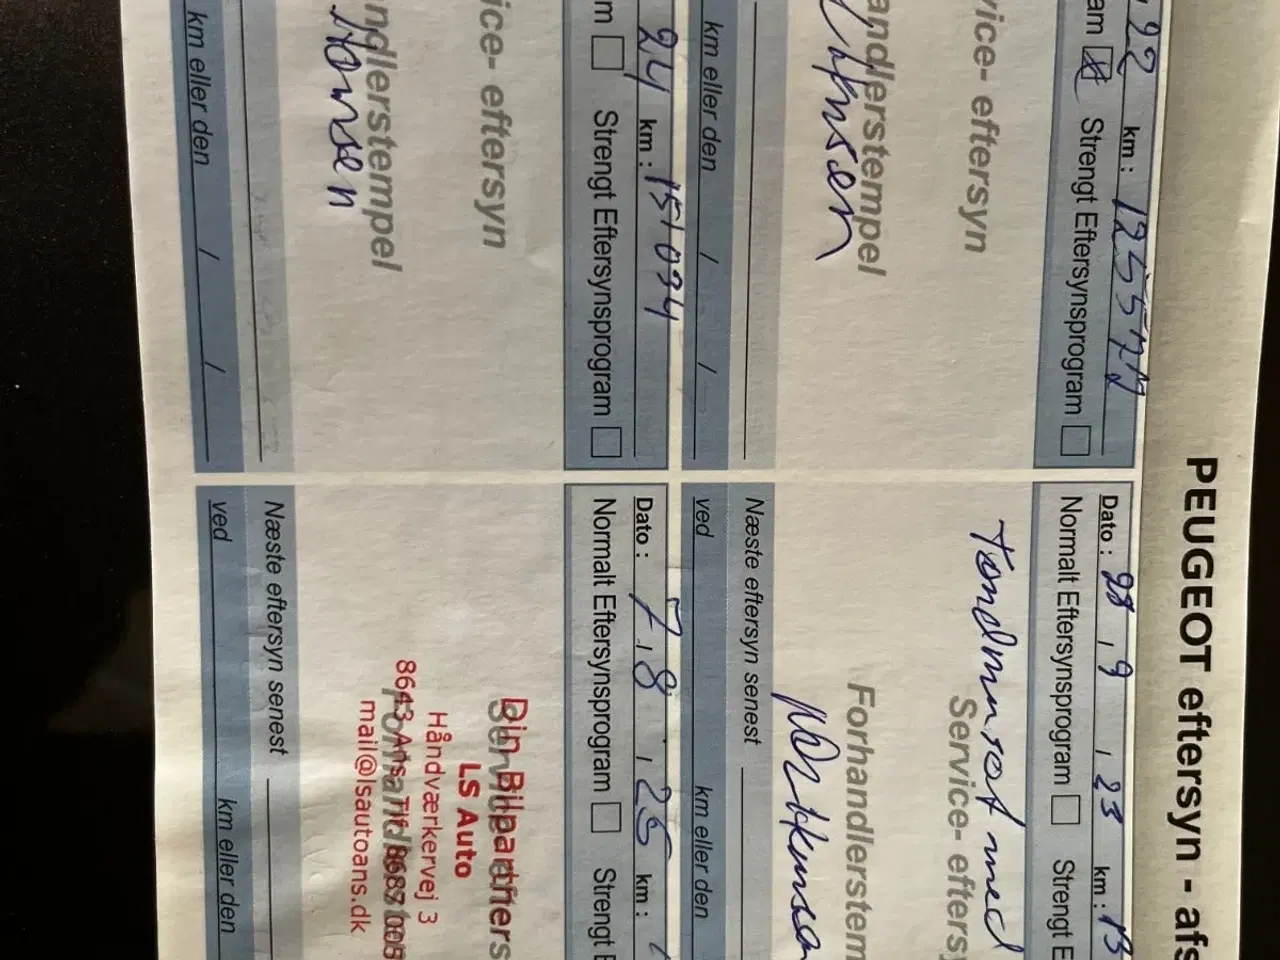 PEUGEOT eftersyn - afs
22 km : 125572
am Strengt Eftersynsprogram
vice- eftersyn
andlerstempel
km eller den / /
Dato : 28 , 9 , 23 km : 13
Normalt Eftersynsprogram Strengt E
Tandrem sat med
Service- efters
Forhandlerstem
Næste eftersyn senest
ved km eller den
24 km : 151094
m Strengt Eftersynsprogram
ice- eftersyn
ndlerstempel
Hansen
km eller den / /
Dato : 7 , 8 , 25 km :
Normalt Eftersynsprogram Strengt E
Din Bilpartner
Service- efters
LS Auto
Håndværkervej 3
8643 Ans Tlf 8687 005
Forhandlerstem
mail@lsautoans.dk
Næste eftersyn senest
ved km eller den